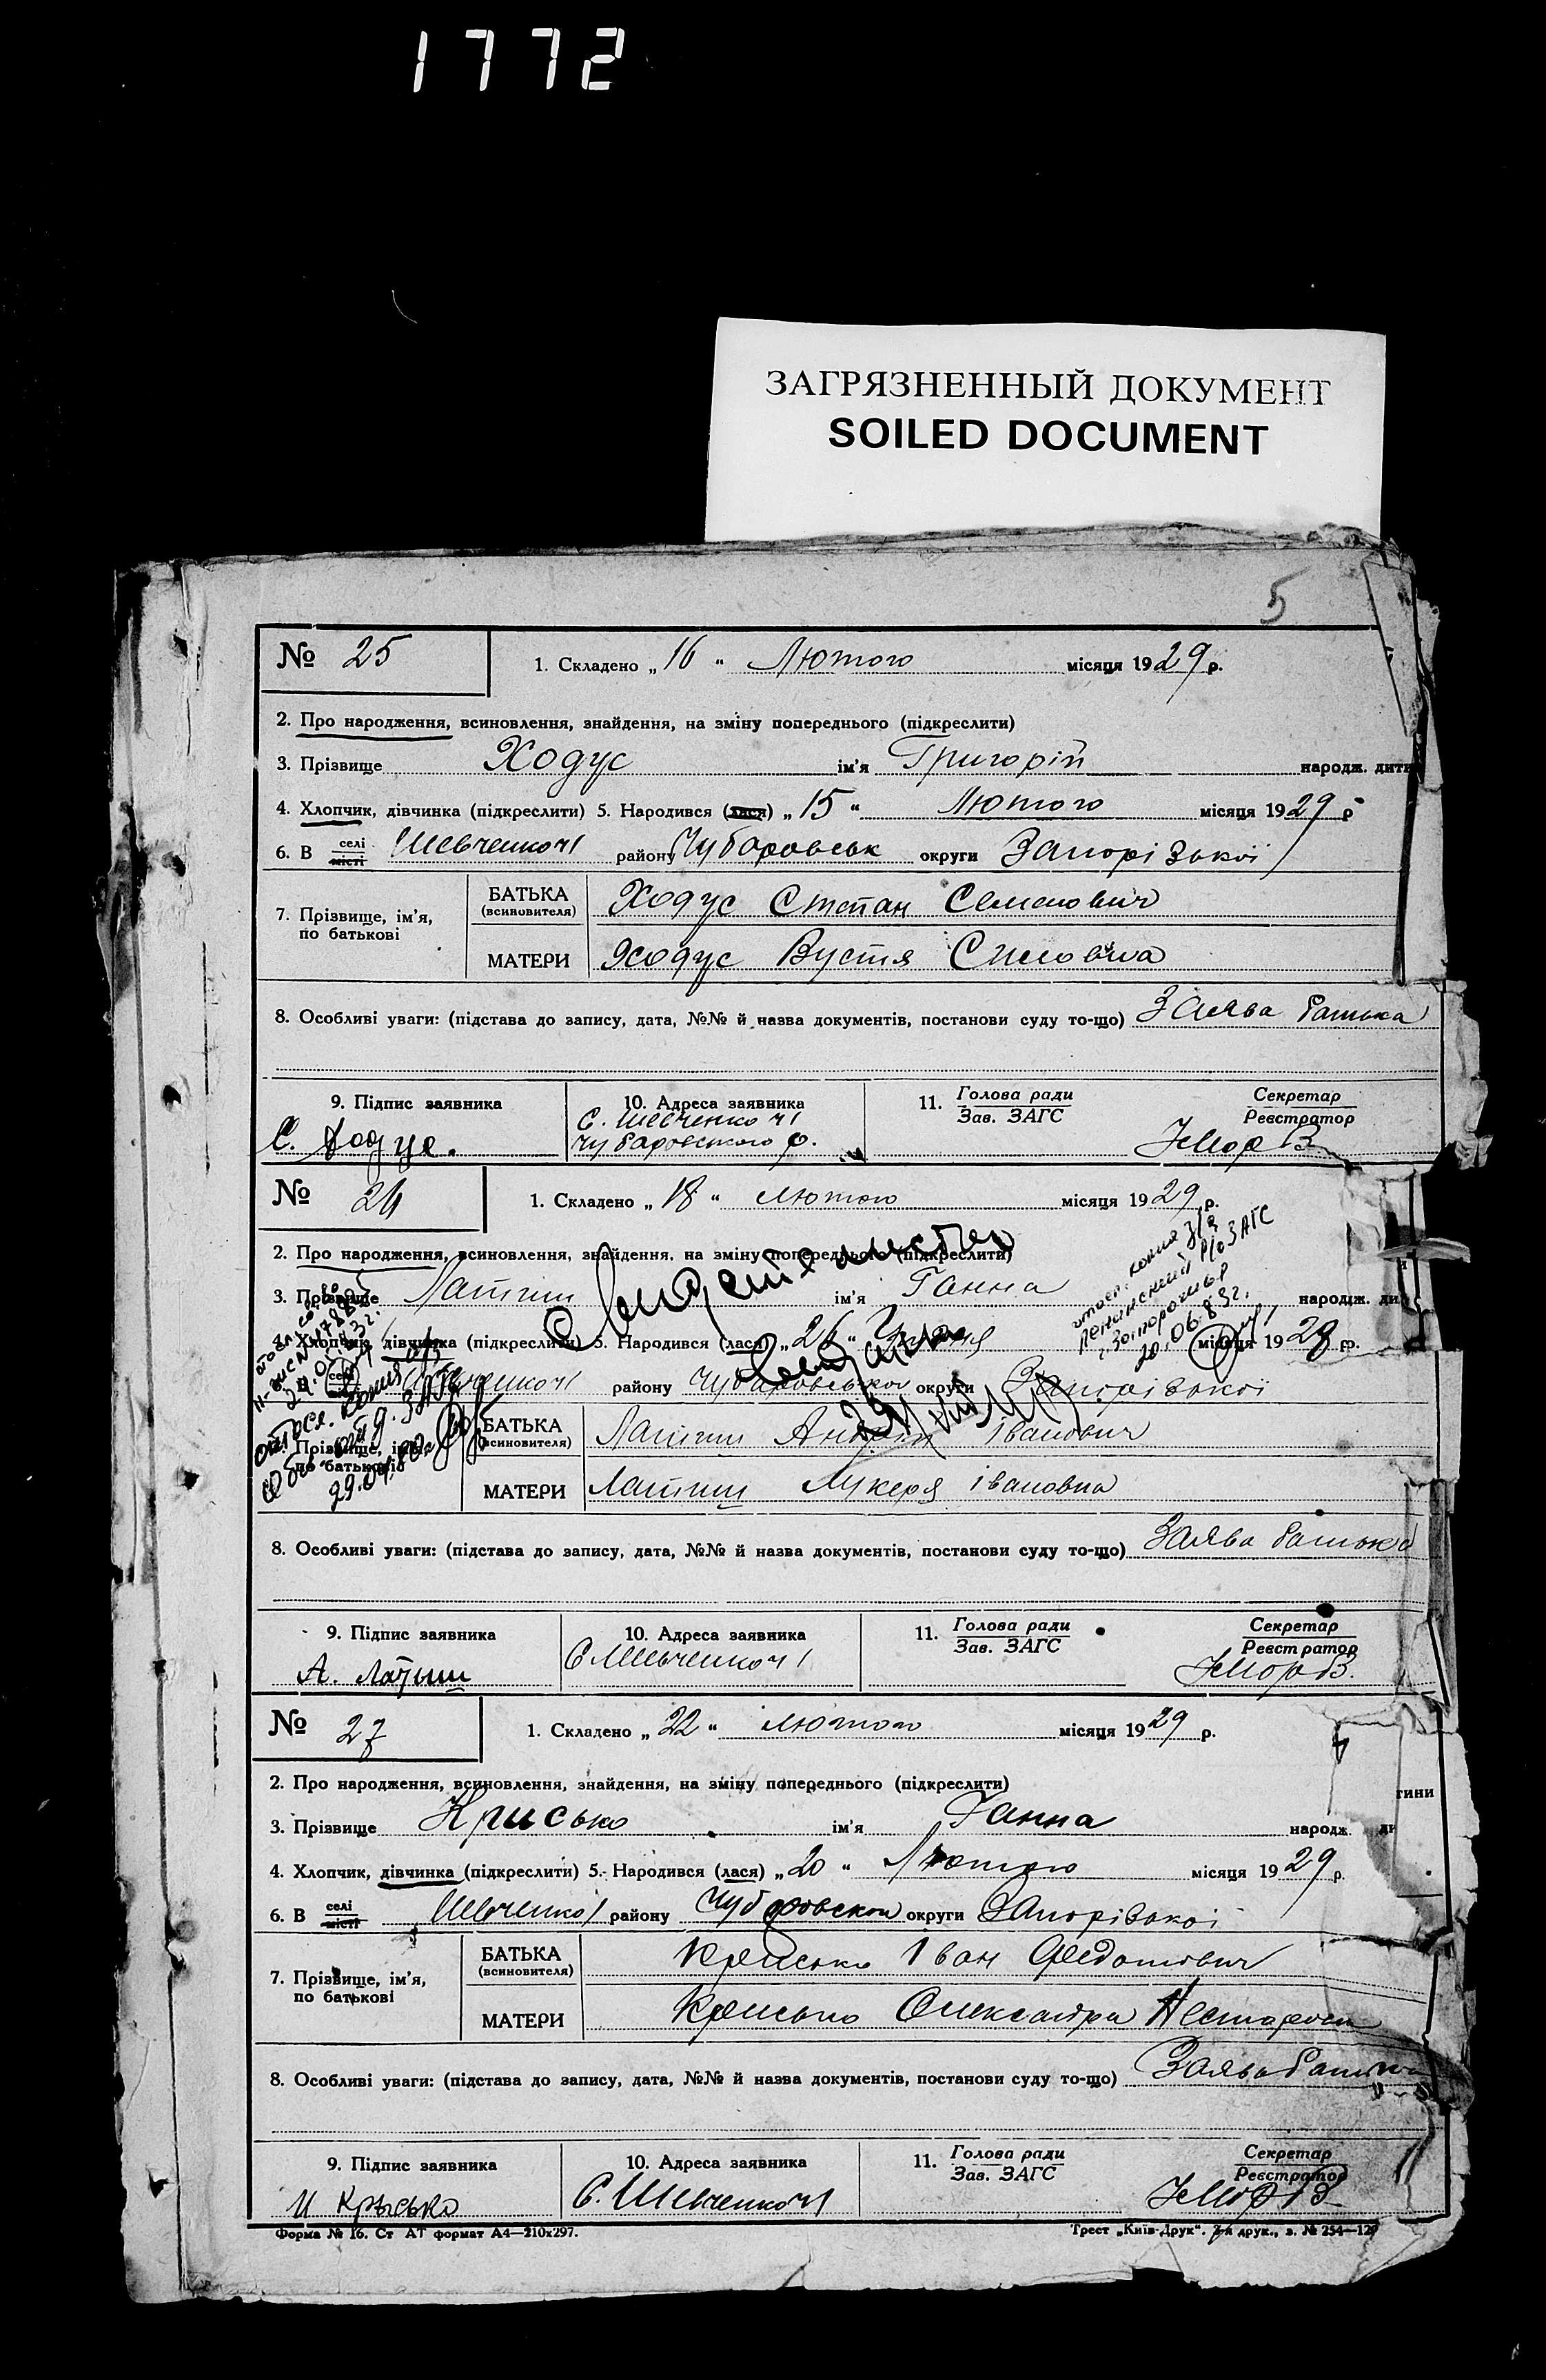 1772
ЗАГРЯЗНЕННЫЙ ДОКУМЕНТ
SOILED DOCUMENT
5
№ 25
1. Складено „16“ Лютого місяця 1929 р.
2. Про народження, всиновлення, знайдення, на зміну попереднього (підкреслити)
3. Прізвище Ходус ім'я Григорій народж. дити
4. Хлопчик, дівчинка (підкреслити) 5. Народився (лася) „15“ Лютого місяця 1929 р
6. В селі місті Шевченко ч1 району Чубаровськ округи Запорізької
7. Прізвище, ім'я, по батькові
БАТЬКА (всиновителя) Ходус Степан Семенович
МАТЕРИ Ходус Вустя Силовна
8. Особливі уваги: (підстава до запису, дата, №№ й назва документів, постанови суду то-що) Заява батька
9. Підпис заявника
С. Ходус.
10. Адреса заявника
С. Шевченко ч1
Чубаровського р.
11. Голова ради
Зав. ЗАГС
Секретар
Реєстратор
№ 26
1. Складено „18“ лютого місяця 1929 р.
2. Про народження, всиновлення, знайдення, на зміну попереднього (підкреслити)
3. Прізвище Латиш ім'я Ганна народж. ди
4. Хлопчик, дівчинка (підкреслити) 5. Народився (лася) „26“ місяця 1928 р.
Шевченко ч1 району Чубаровської округи Запорізької
Прізвище, ім'я, по батькові
БАТЬКА (всиновителя) Латиш Андрій Іванович
МАТЕРИ Латиш Лукеря Івановна
копия
Ленинский Р/о ЗАГС
г. Запорожья
20.06.83г.
29.04.
8. Особливі уваги: (підстава до запису, дата, №№ й назва документів, постанови суду то-що) Заява батька
9. Підпис заявника
А. Латыш
10. Адреса заявника
С Шевченко ч1
11. Голова ради
Зав. ЗАГС
Секретар
Реєстратор
№ 27
1. Складено „22“ лютого місяця 1929 р.
2. Про народження, всиновлення, знайдення, на зміну попереднього (підкреслити)
тини
3. Прізвище Крисько ім'я Ганна народж. ди
4. Хлопчик, дівчинка (підкреслити) 5. Народився (лася) „20“ Лютого місяця 1929 р.
6. В селі місті Шевченко 1 району Чубаровской округи Запорізької
7. Прізвище, ім'я, по батькові
БАТЬКА (всиновителя) Крисько Іван Федотович
МАТЕРИ Крисько Олександра
8. Особливі уваги: (підстава до запису, дата, №№ й назва документів, постанови суду то-що) Заява батька
9. Підпис заявника
И Крысько
10. Адреса заявника
С. Шевченко ч1
11. Голова ради
Зав. ЗАГС
Секретар
Реєстратор
Форма № 16. Ст АТ формат А4—210х297.
Трест „Київ-Друк“. друк., з. № 254—129